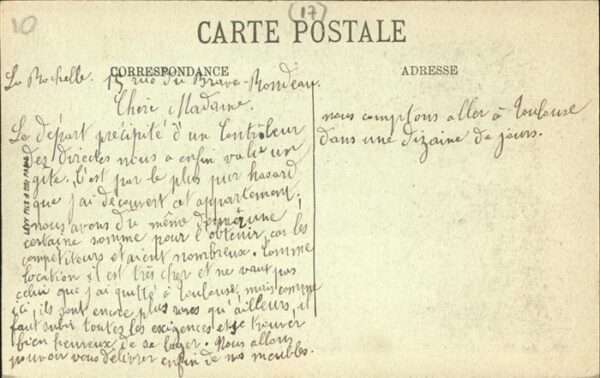 10
(17)
CARTE POSTALE
CORRESPONDANCE
ADRESSE
La Rochelle. 15 rue du Brave-Rondeau.
Chère Madame.
Le départ précipité d'un Contrôleur
des directes nous a enfin valu un
gîte. C'est par le plus pur hasard
que j'ai découvert cet appartement;
nous avons du même donner une
certaine somme pour l'obtenir, car les
compétiteurs étaient nombreux. Comme
location il est très cher et ne vaut pas
celui que j'ai quitté à Toulouse, mais comme
ici, ils sont encore plus rares qu'ailleurs, il
faut subir toutes les exigences et se trouver
bien heureux de se loger. Nous allons
pouvoir vous délivrer enfin de nos meubles.
nous comptons aller à Toulouse
dans une dizaine de jours.